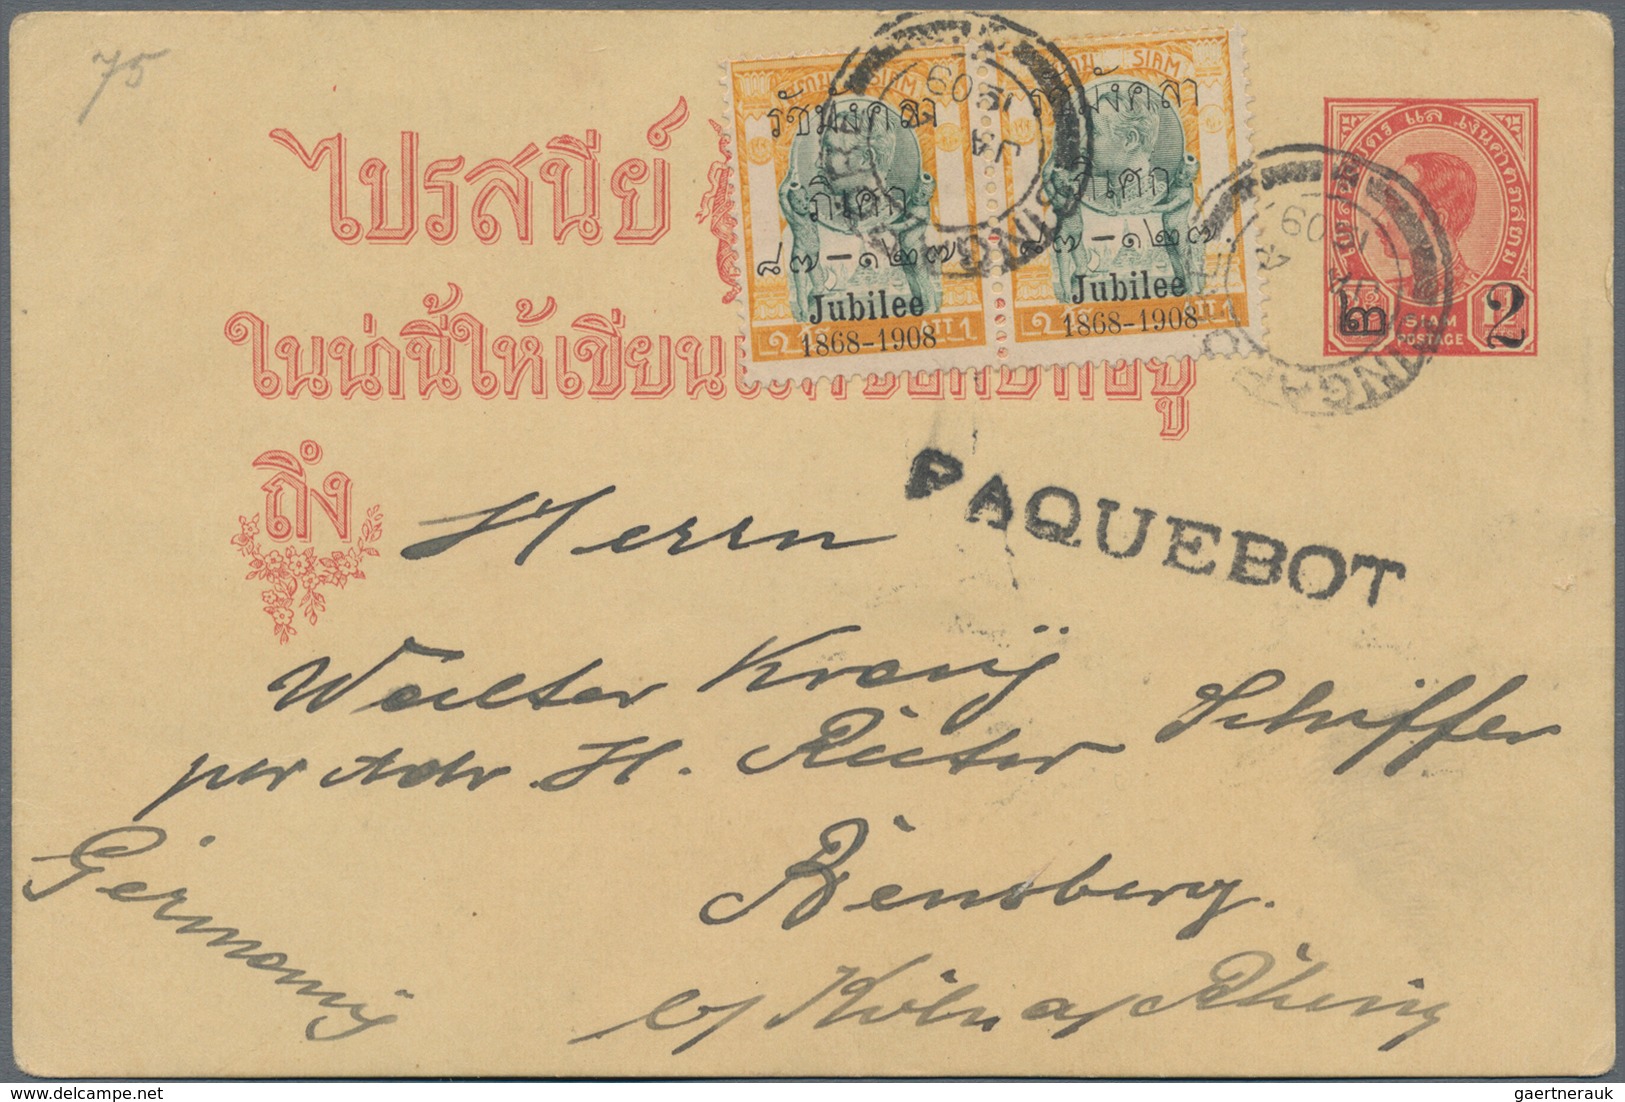 75
ไปรสนียบัตร
ในน่านี้ให้เขียน
ถึง
สยาม SIAM
รัชมังคลา
ภิเศก
๘๗-๑๒๗
Jubilee
1868-1908
SIAM
รัชมังคลา
ภิเศก
๘๗-๑๒๗
Jubilee
1868-1908
SINGAPORE
JA 15
09
SINGAPORE
JA
09
๒ SIAM POSTAGE 2
PAQUEBOT
Herrn
Walter
per Adr. H. Rüter Schiffer
Bensberg.
b/ Köln a/ Rhein
Germany
gaertnerauk